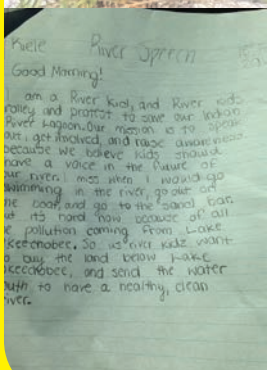 Kiele River Speech
Good Morning!
I am a River Kid, and River kids
ralley and protest to save our Indian
River Lagoon. Our mission is to speak
out, get involved, and raise awareness
because we believe kids should
have a voice in the future of
our river. I miss when I would go
swimming in the river, go out on
the boat, and go to the sand bar.
but it's hard now because of all
the pollution coming from Lake
Okeechobee. So us river kidz want
to buy the land below Lake
Okeechobee, and send the water
south to have a healthy, clean
river.